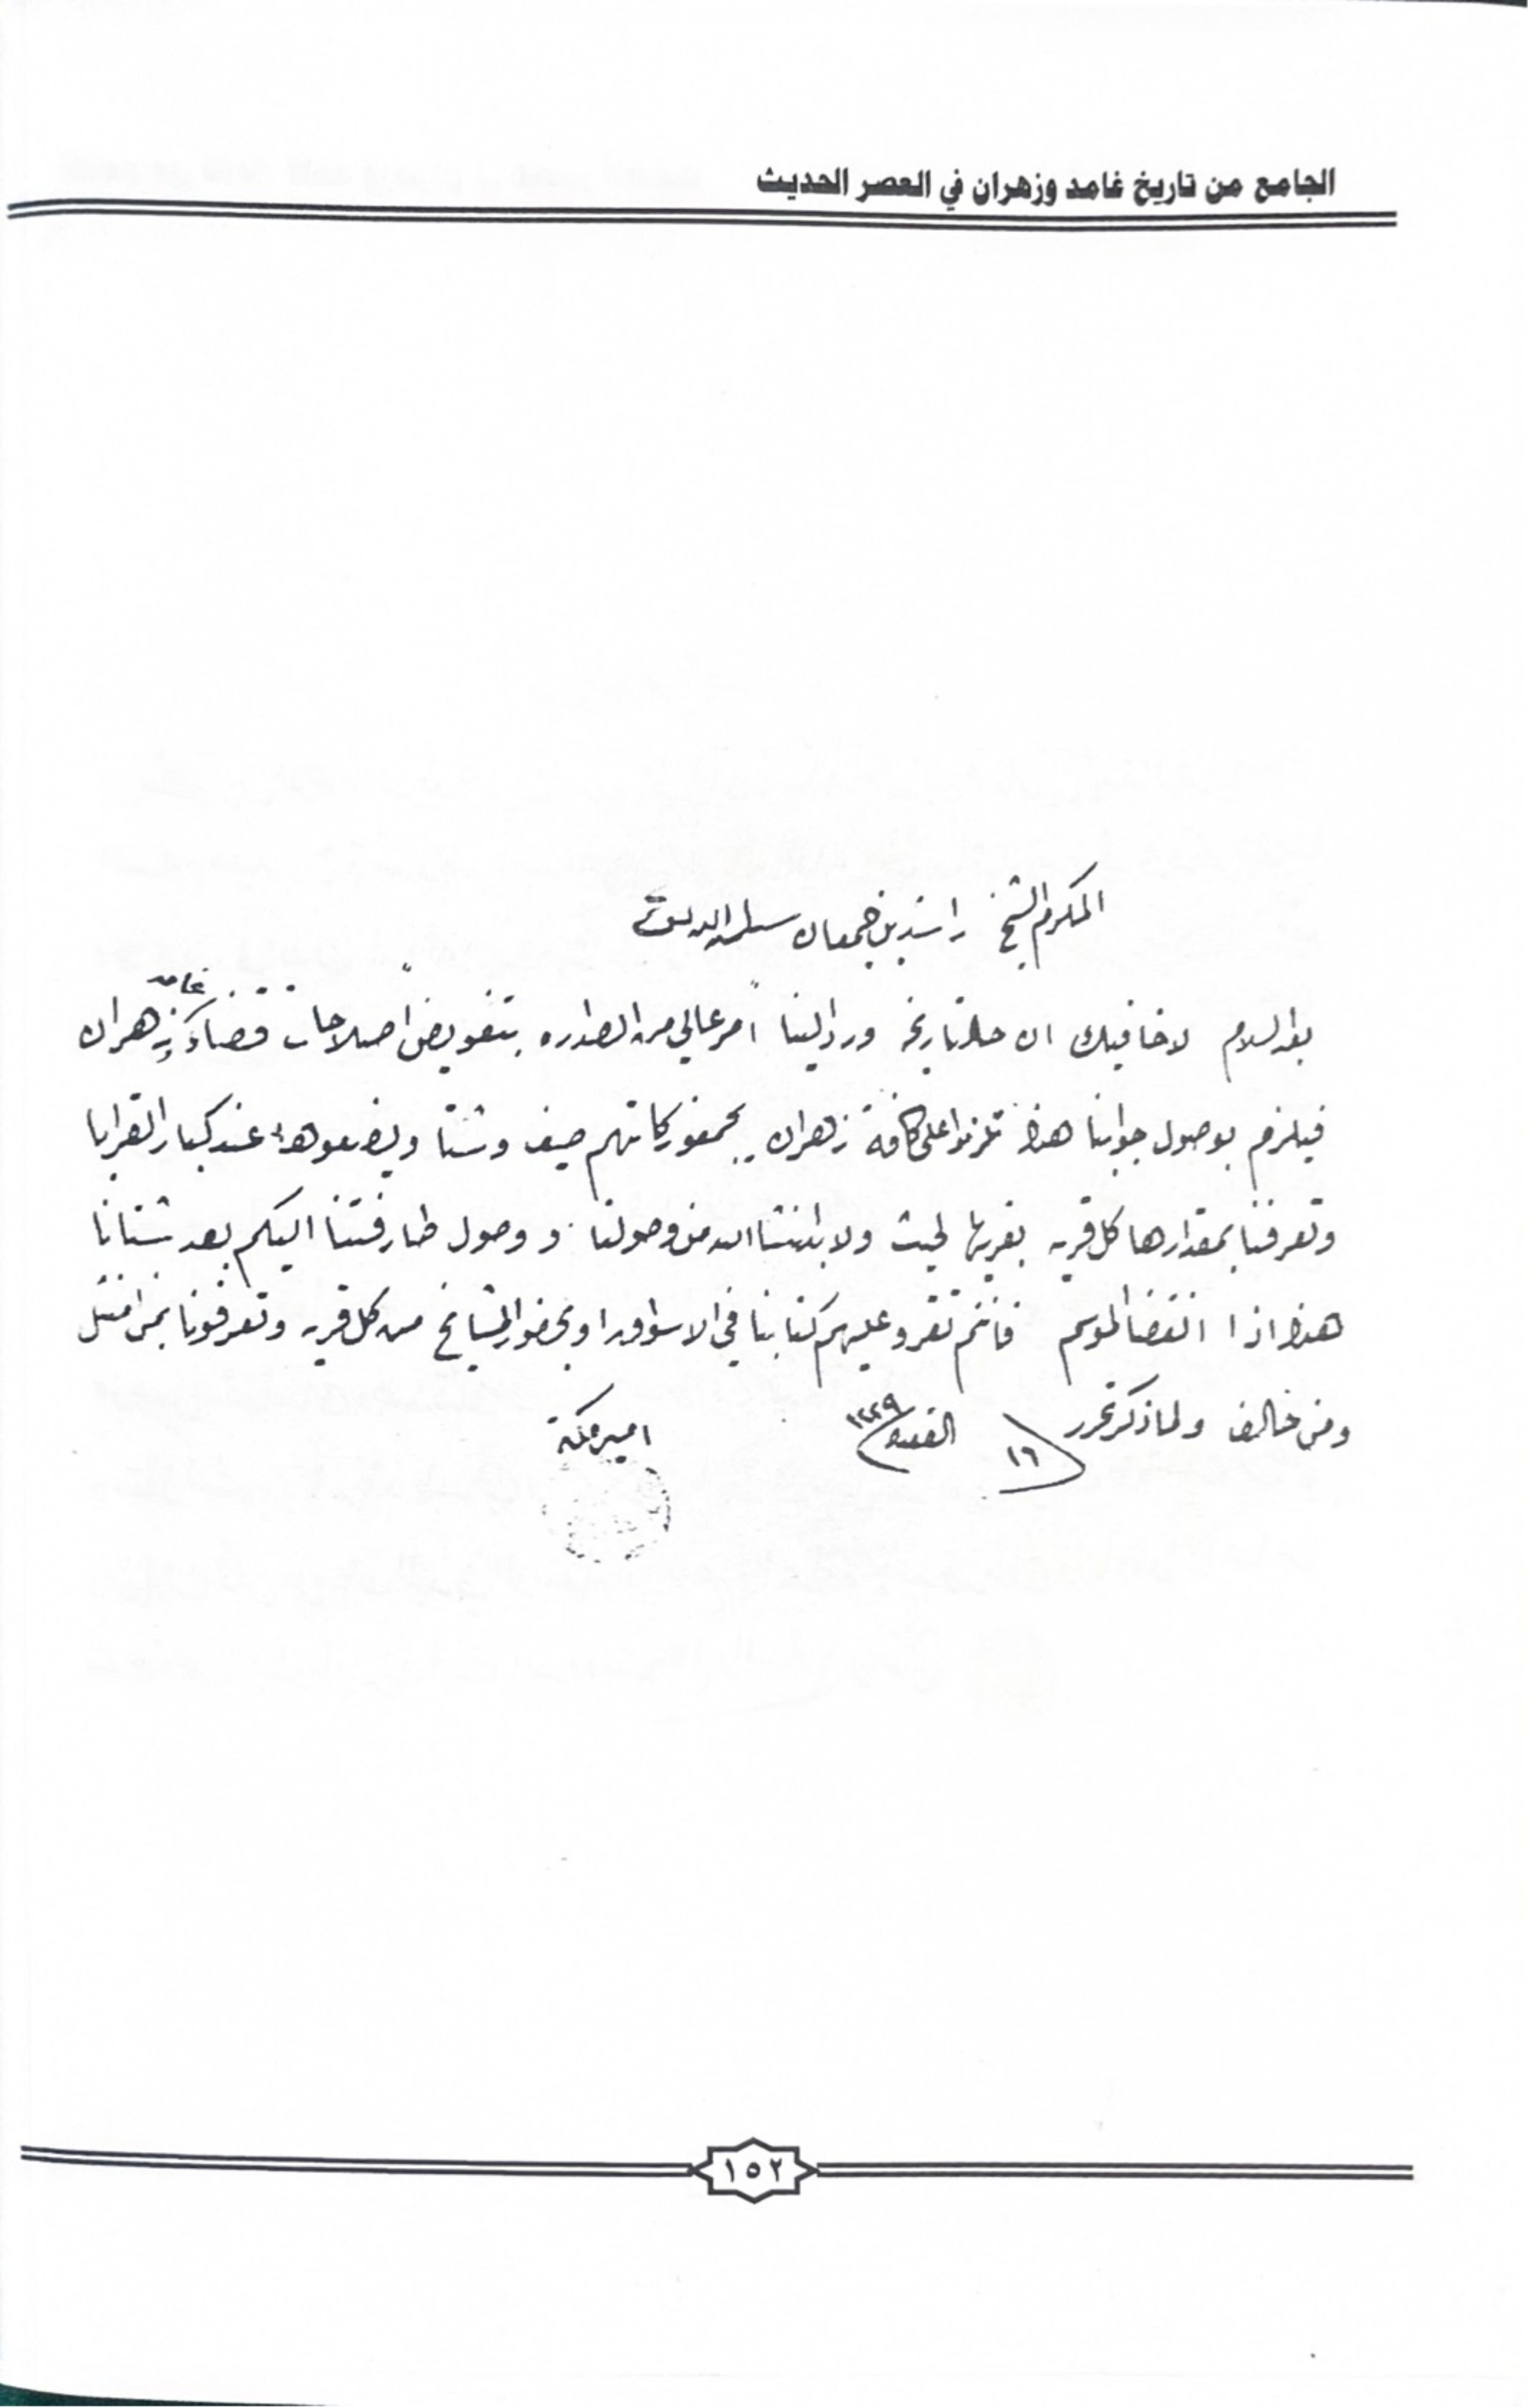 الجامع من تاريخ غامد وزهران في العصر الحديث
المكرم الشيخ راشد بن جمعان سلمه الله تعالى
بعد السلام لا خافيك ان حال تاريخه ورد الينا امر عالي من الصداره بتفويض اصلاحات قضاء غامد وزهران
فيلزم بوصول جوابنا هذا تلزموا على كافة زهران بحفور زكاتهم صيف وشتا ويضعوها عند كبار القرايا
وتعرفنا بمقدارها كل قريه بقريتها لحيث ولا بد انشا الله من وصولنا و وصول طارفتنا اليكم بعد شتانا
هذا اذا انقضا الموسم فانتم تقروا عليهم كتابنا في الاسواق وبحضور المشايخ من كل قريه وتعرفونا بمن امتثل
ومن خالف ولما ذكر تحرر ١٦ القعده ١٣٢٩
امير مكة
١٥٢